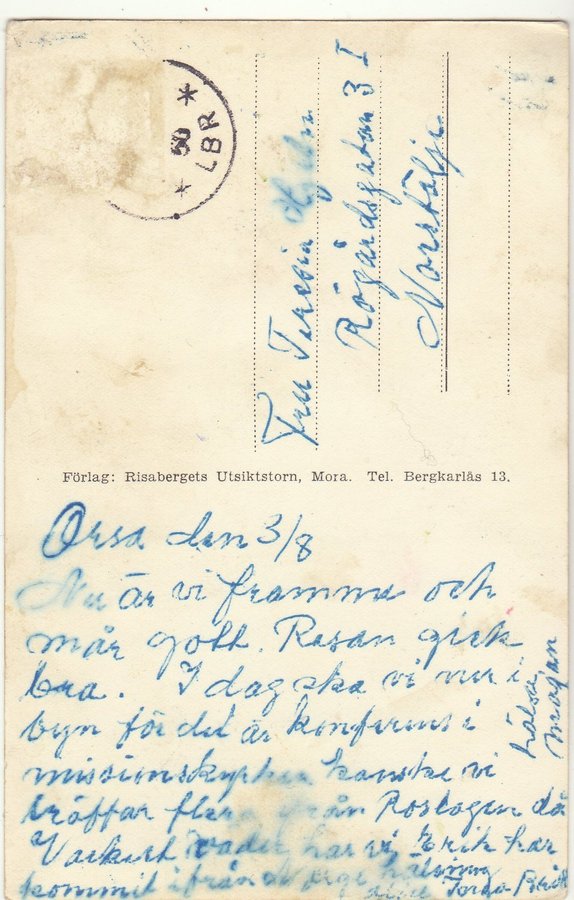 50
LBR
Fru Teresia
Rögårdsgatan 3 I
Norrtälje
Förlag: Risabergets Utsiktstorn, Mora. Tel. Bergkarlås 13.
Orsa den 3/8
Nu är vi framme och
mår gott. Resan gick
bra. I dag ska vi ner i
byn för det är konferens i
missionskyrkan kanske vi
träffar flera från Roslagen då
Vackert väder har vi Erik har
kommit ifrån Norge hälsning
Erik
hälsa
mogan